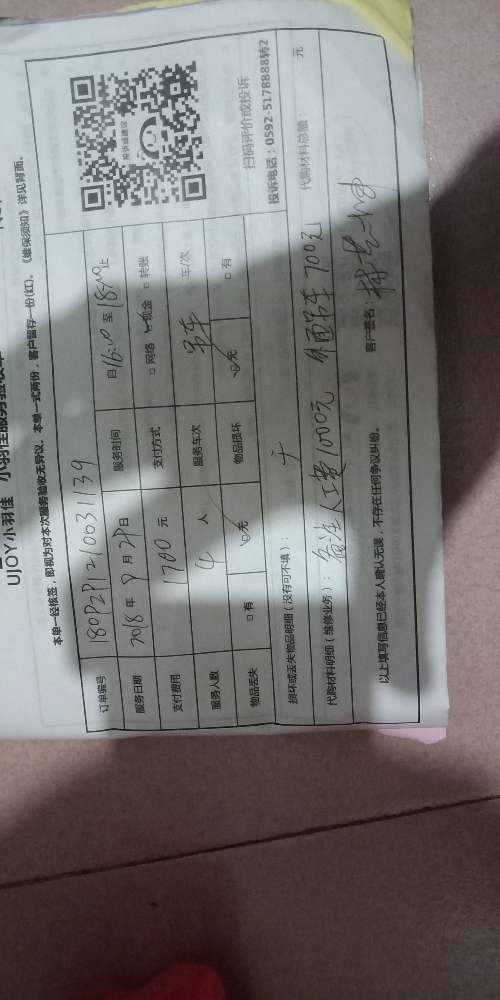 UJOY小羽佳 小羽佳服务验收单
本单一经核签，即视为对本次服务验收无异议。本单一式两份，客户留存一份(红)。《维保须知》详见背面。
订单编号
服务日期 2018 年 9 月 29 日 服务时间 自 16:00 至 18:00 止
支付费用 1700 元 支付方式 □ 网络 ☑ 现金 □ 转账
服务人数 4 人 服务车次 吊车 车/次
物品丢失 □ 有 ☑ 无 物品损坏 ☑ 无 □ 有
投诉或建议
扫码评价或投诉
投诉电话：0592-5178888转2
损坏或丢失物品明细（没有可不填）： 无
代购材料明细（维修业务）： 备注人工费1000元 外面吊车700元 代购材料总额： 元
以上填写信息已经本人确认无误，不存在任何争议纠纷。 客户签名：